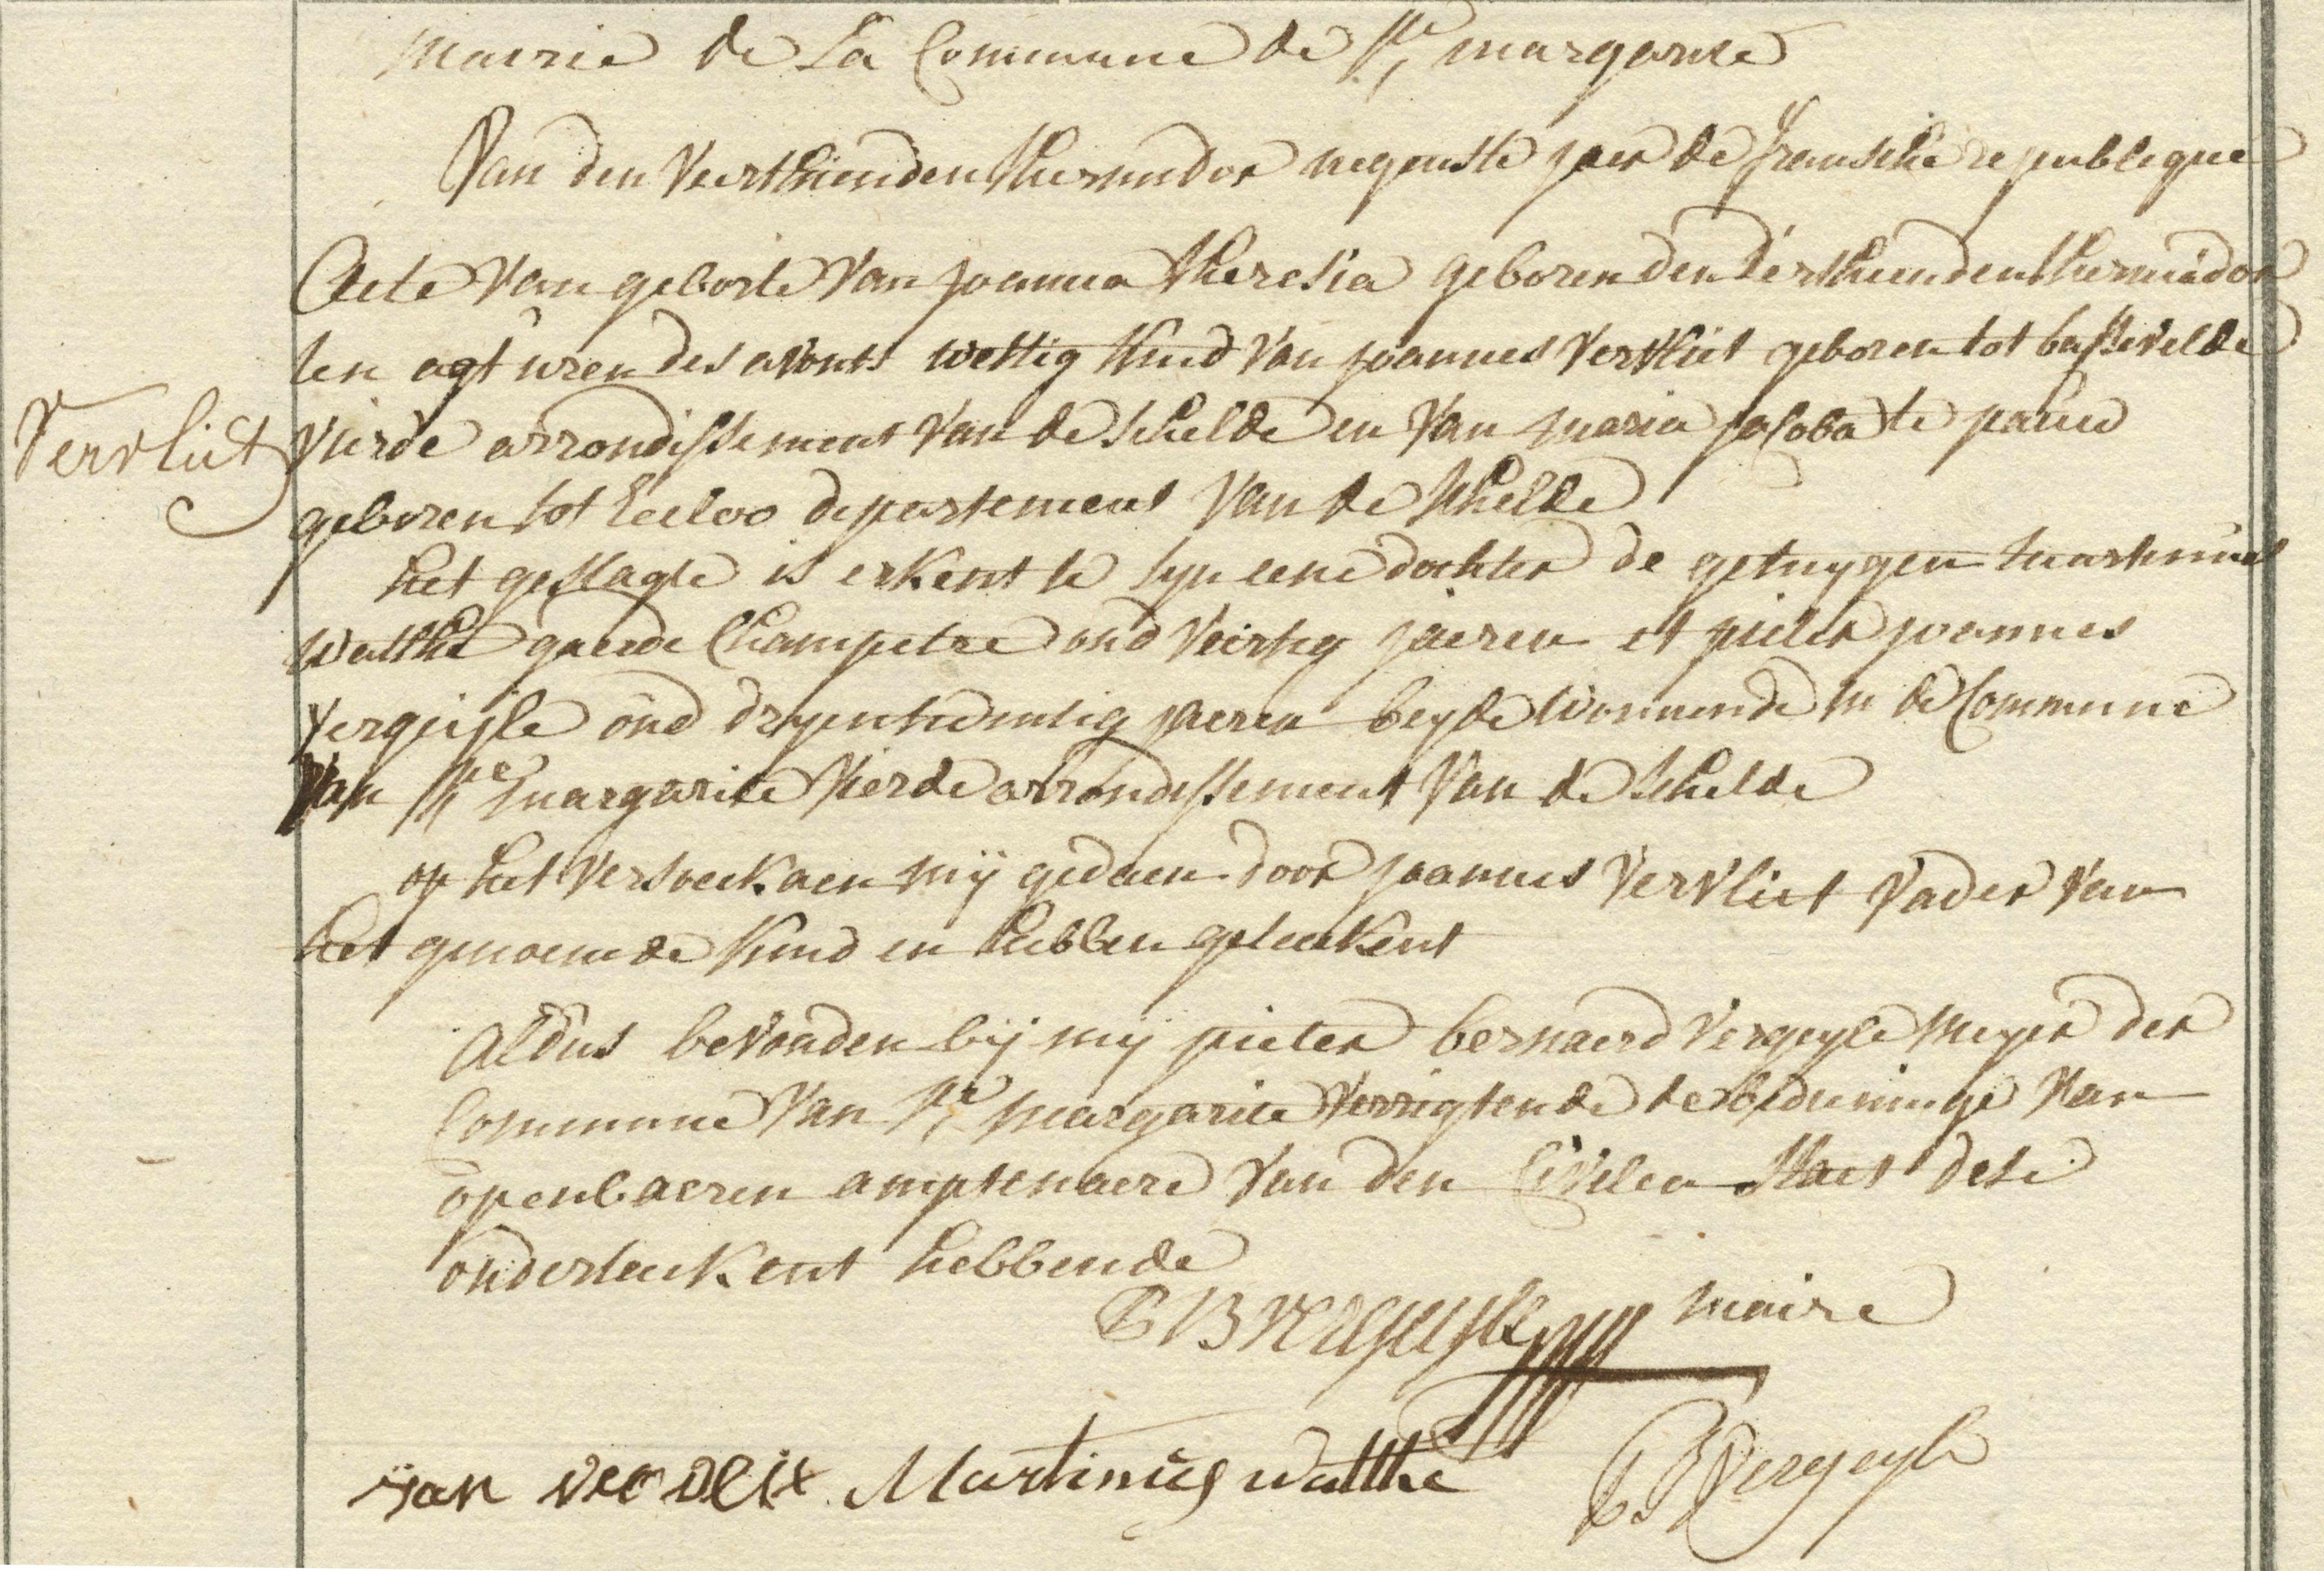 Mairie de La Commune de Ste margarite
Van den Veerthienden thermidor negenste jaer de fransche republeque
Acte van geborte van joanna theresia geboren den derthienden thermidor
ten agt uren des avonts wettig kind van joannes Vervliet geboren tot bassevelde
Vervliet
vierde arrondissement van de schelde en van maria jacoba de pauw
geboren tot Eecloo departement van de schelde
het geslagte is erkent te syn eene dochter de getuygen martinus
watthé guarde Champetre oud veirtig jaeren et pieter joannes
vergeijle oud dryentwintig jaeren beyde woonnende in de Commune
Van Ste margarite vierde arrondissement van de schelde
op het versoeck aen mij gedaen door joannes vervliet vader van
het genoemde kind en hebben geteekent
Aldus bevonden bij mij pieter bernaerd vergeyle meyer der
Commune van Ste margarite verrigtende de bedieninge van
openbaeren amptenaere van den Civilen Staet dese
onderteekent hebbende
P B vergeyle maire
jan ver vliet Martinus watthé P J Vergeyle